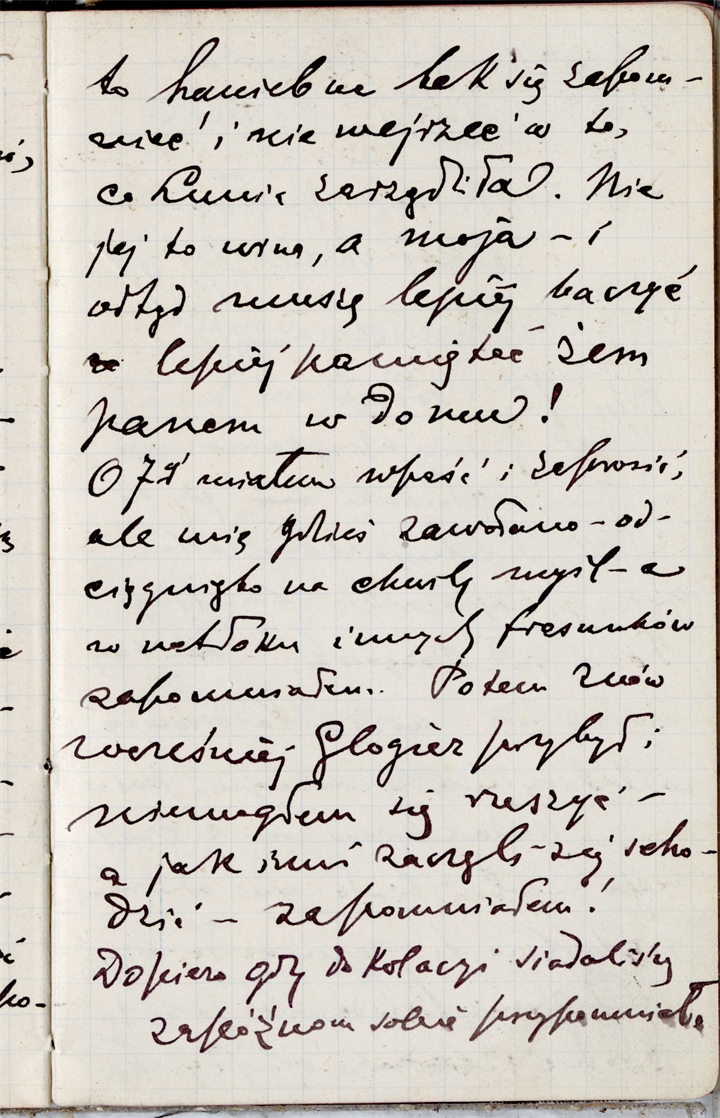 to haniebne tak się zapom-
nieć i nie wejrzeć w to,
co Lunia zarządziła. Nie
jej to wina, a moja - i
odtąd muszę lepiej baczyć
lepiej pamiętać żem
panem w domu!
O 7ej miałem wpaść i zaprosić,
ale mię gdzieś zawołano - od-
ciągnięto na chwilę myśl - a
w natłoku innych frasunków
zapomniałem. Potem znów
wcześniej Glogier przybył i
niemogłem się ruszyć -
a jak inni zaczęli się scho-
dzić - zapomniałem!
Dopiero gdy do kolacyi siadaliśmy
zapóźnom sobie przypomniał